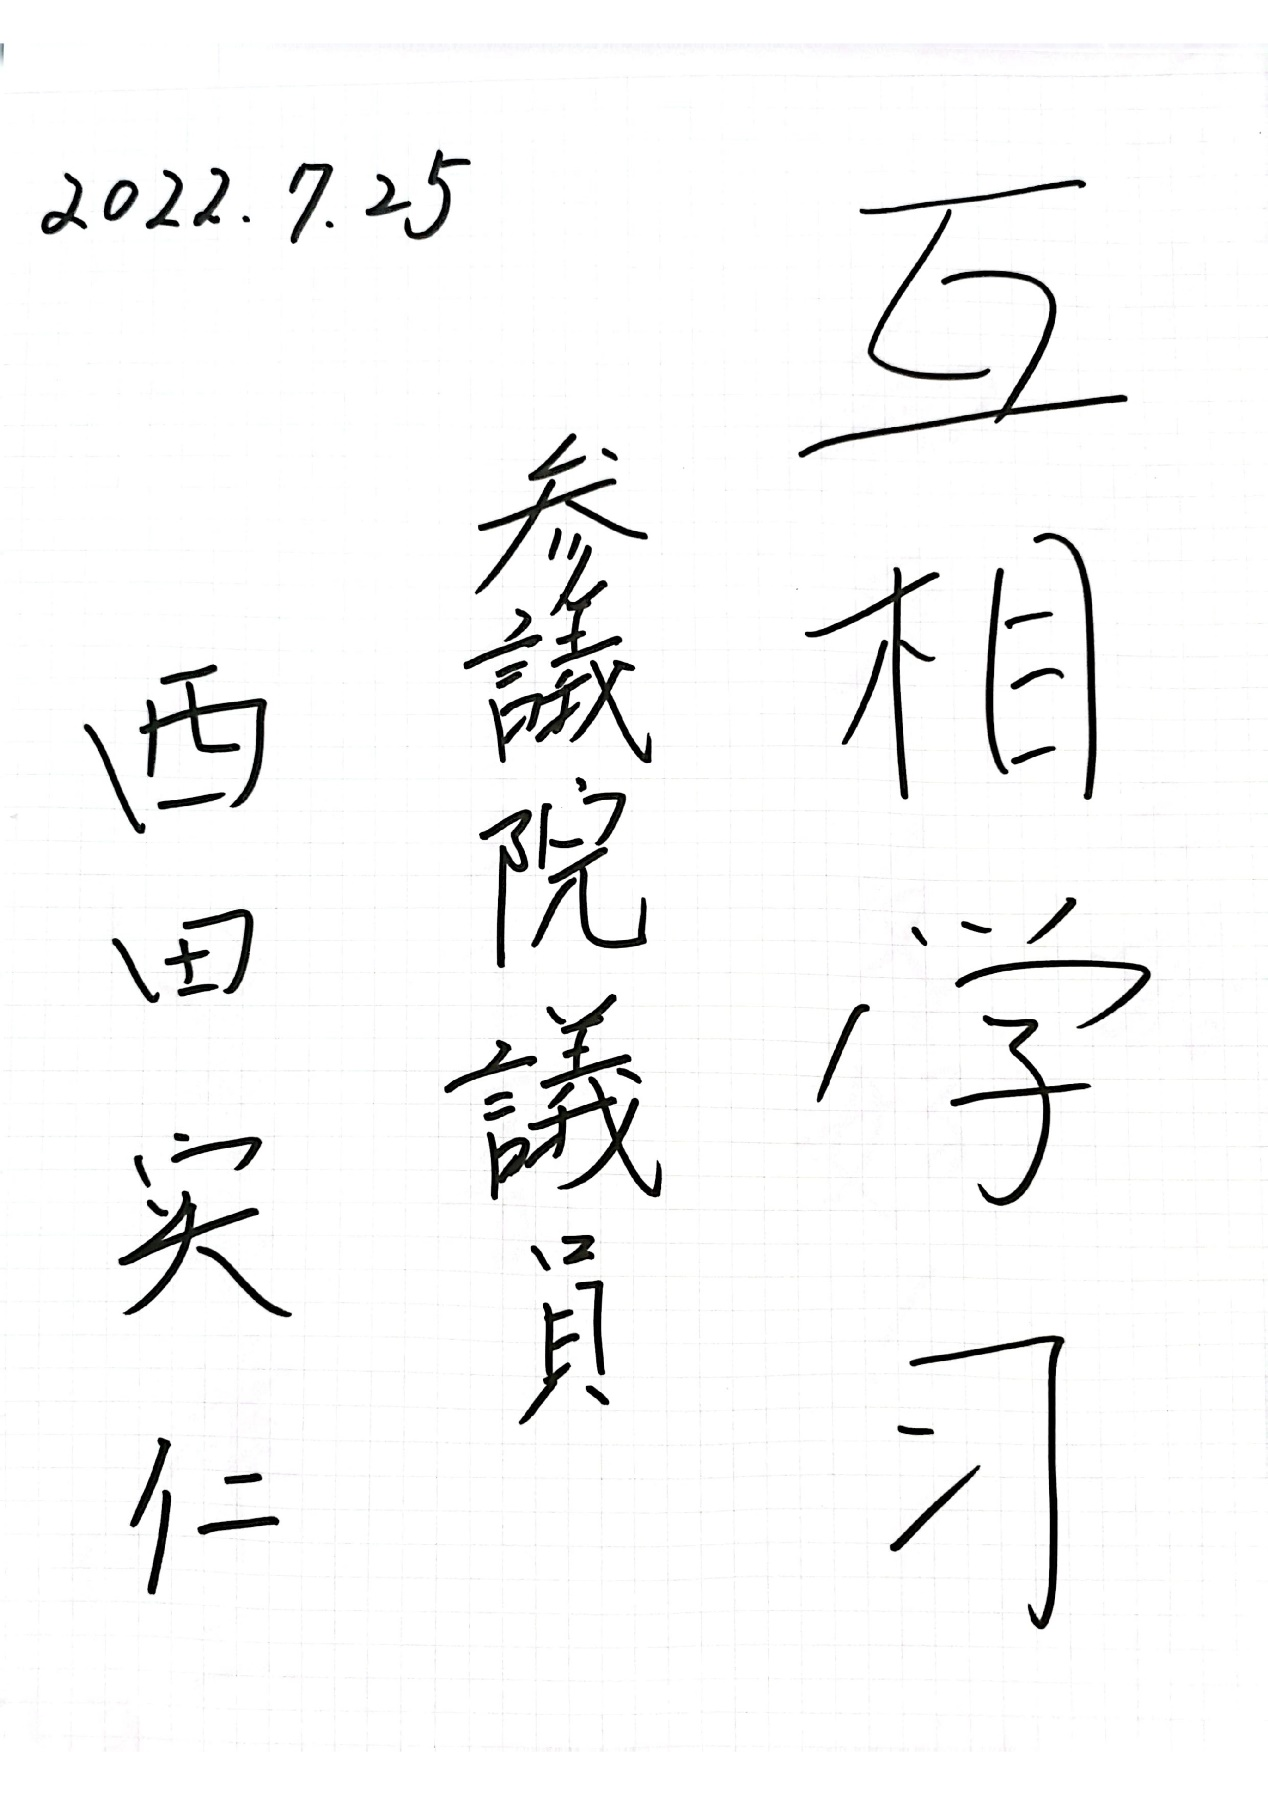 互相学习
参議院議員
西田実仁
2022.7.25